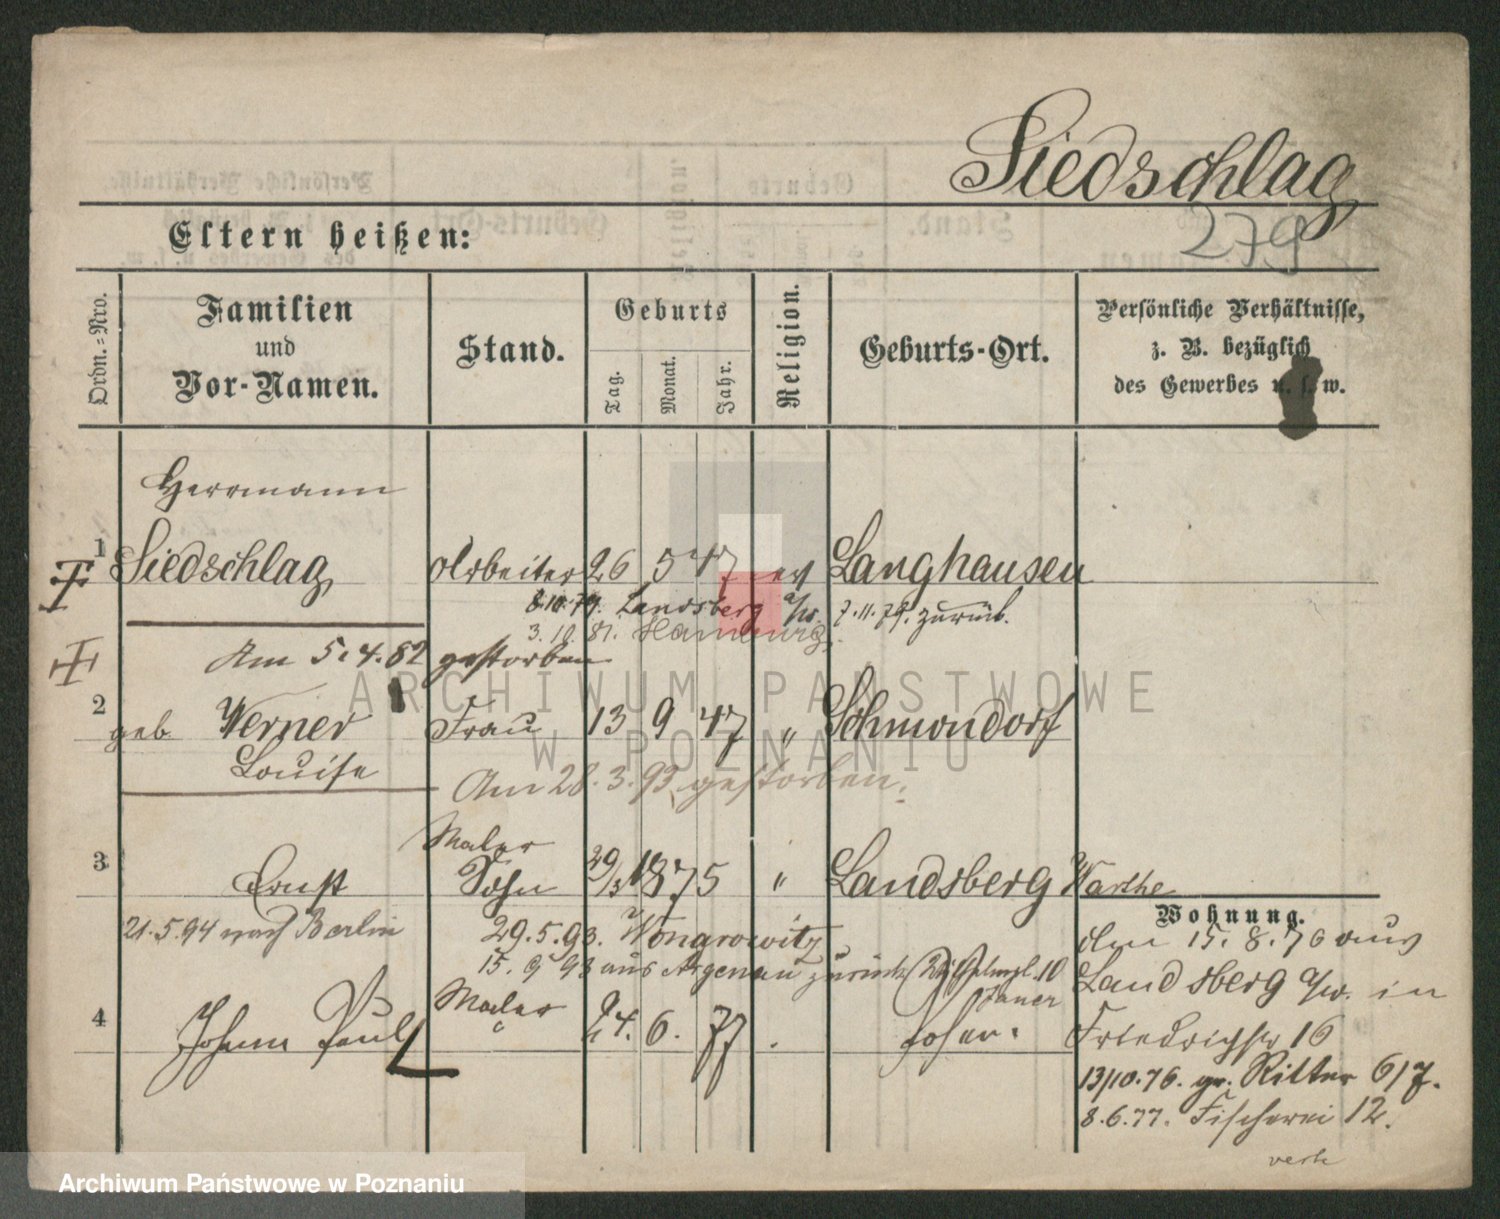 Siedschlag
279
Eltern heißen:
Ordn.=Nro.
Familien
und
Vor-Namen.
Stand.
Geburts
Tag.
Monat.
Jahr.
Religion.
Geburts-Ort.
Persönliche Verhältnisse,
z. B. bezüglich
des Gewerbes u. s. w.
Herrmann
1 Siedschlag Arbeiter 26 5 47 ev Langhausen
8.10.79. Landsberg a/w. 7.11.79. zurück.
3.10.81. Hamburg.
Am 5.4.82 gestorben
2 geb. Werner Frau 13 9 47 " Schmondorf
Louise
Am 28.3.93 gestorben.
Maler
3 Ernst Sohn 29/3 1875 " Landsberg Warthe
21.5.94 nach Berlin
29.5.93. Wongrowitz
15.9 93 aus Argenau zurück
Maler
4 Johann Paul 24. 6. 77 . Posen.
Wohnung.
Den 15.8.76 aus
Landsberg a/w. in
Friedrichstr 16
13/10.76. gr. Ritter 6/7.
8.6.77. Fischerei 12.
ARCHIWUM PAŃSTWOWE
W POZNANIU
Archiwum Państwowe w Poznaniu